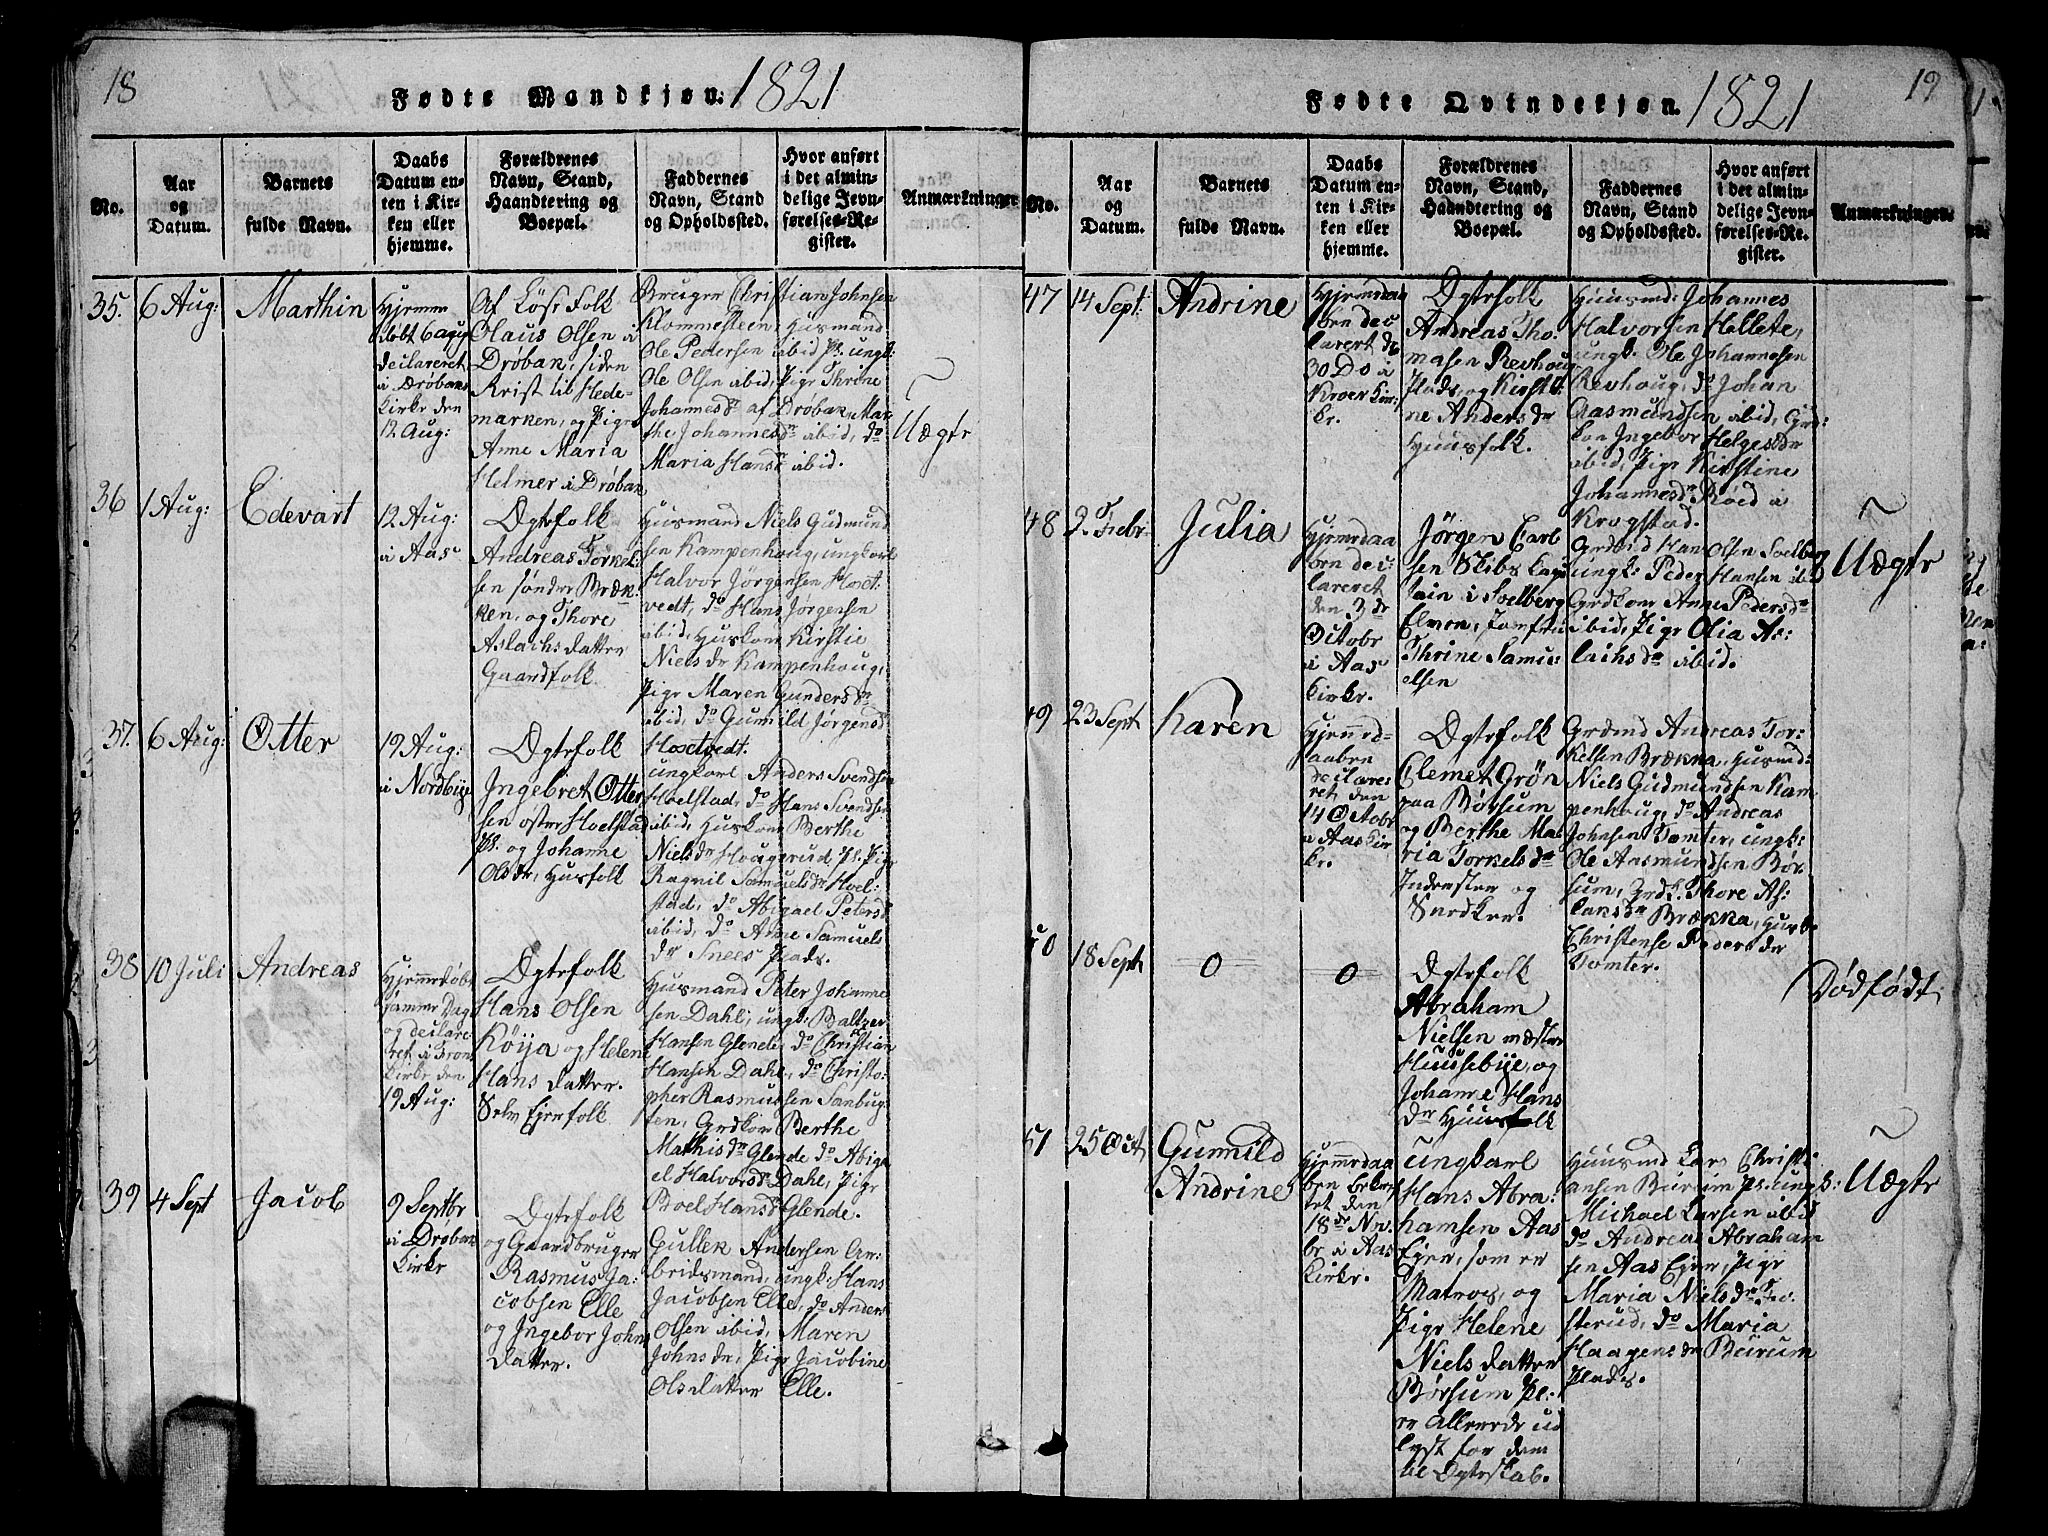 18
Fødte Mandkjøn: 1821
No.
Aar
og
Datum.
Barnets
fulde Navn.
Daabs
Datum en-
ten i Kir-
ken eller
hjemme.
Forældrenes
Navn, Stand,
Haandtering og
Boepæl.
Faddernes
Navn, Stand
og Opholdssted.
Hvor anført
i det almin-
delige Jevn-
førelses-Re-
gister.
Anmærkninger
35.
6 Aug:
Marthin
Hjemme
døbt 6 aug
declareret
i Drøbaks
Kirke den
12 Aug:
Af Løse Folk
Olaus Olsen i
Drøban, siden
Reist til Hede-
marken, og Pige
Anne Maria
Helmer i Drøban
Bruger Christian Johnsen
Klommesteen, Husmand
Ole Pedersen ibid Pl. ungk:
Ole Olsen ibid, Pige Thrine
Johannesdr af Drøban, Mar-
the Johannesdr ibid, do
Maria Hansdr ibid.
Uægte
36
1 Aug:
Edevart
12 Aug:
i Aas
Ægtefolk
Andreas Torkel
sen søndre Bræk-
ken, og Thore
Aslachsdatter
Gaardfolk
Husmand Niels Gudmund
sen Kampenhoug, ungkarl
Halvor Jørgensen Hoset-
vedt, do Hans Jørgensen
ibid, Huskone Kirstie
Nielsdr Kampenhoug,
Pige Maren Gundersdr
ibid, do Gunnild Jørgensd
Hosetvedt.
37.
6 Aug:
Otter
19 Aug:
i Nordbye
Ægtefolk
Ingebret Otter
sen østre Hoelstad
Pl. og Johanne
Olsdr, Husfolk
ungkarl Anders Svendsen
Hoelstad, do Hans Svendsen
ibid, Huskone Berthe
Nielsdr Hougerud, Pl. Pige
Ragnil Samuelsdr Hoel-
stad, do Abigael Petersd
ibid, do Anne Samuels
dr Snees Plads.
38
10 Juli
Andreas
Hjemmedøbt
samme Dag
og declare
ret i Frons
Kirke den
19 Aug:
Ægtefolk
Hans Olsen
Køya og Helene
Hans datter.
Selv Ejerfolk
Husmand Peter Johanne
sen Dahl, ungk: Baltzer
Hansen Glende, do Christian
Hansen Dahl, do Christo-
pher Rasmussen Sanbug-
ten, Grdkone Berthe
Mathisdr Glende do Abiga
el Halvorsdr Dahl, Pige
Boel Hansdr Glende.
39
4 Sept
Jacob
9 Septbr
i Drøbak
Kirke
Ægtefolk
og Gaardbruger
Rasmus Ja-
cobsen Elle
og Ingebor Johns
datter.
Gullek Andersen Ar-
beidsmand, ungk: Hans
Jacobsen Elle, do Anders
Olsen ibid, Maren
Johnsdr, Pige Jacobine
Olsdatter Elle.
19
Fødte Qvindekjøn. 1821
No.
Aar
og
Datum.
Barnets
fulde Navn.
Daabs
Datum en-
ten i Kir-
ken eller
hjemme.
Forældrenes
Navn, Stand,
Haandtering og
Boepæl.
Faddernes
Navn, Stand
og Opholdssted.
Hvor anført
i det almin-
delige Jevn-
førelses-Re-
gister.
Anmærkninger.
47
14 Sept:
Andrine
Hjemdaa
ben dec
larert de
30 Do i
Kroer Kir-
ke.
Ægtefolk
Andreas Tho-
masen Revhoug
Plads, og Kirsti-
ne Andersdr
Huusfolk.
Huusmd: Johannes
Halvorsen Hallete,
ungk. Ole Johannesen
Revhoug, do Johan
Aasmundsen ibid, Grd-
kon Ingebor Helgesdr
ibid, Pige Kirstine
Johannesdr Roed i
Krogstad.
48
2 Febr
Julia
Hjemedaa
ben dec-
lareret
den 3de
Octobr
i Aas
Kirke.
Jørgen Carl
sen Skibs Cap-
tain i Svelberg
Elven, Jomfru
Thrine Samu-
elsen
Grdbrd Hans Olsen Svelberg
ungk: Peder Hansen ibid
Grdkone Anne Pedersdr
ibid, Pige Olia As-
lachsdr ibid.
Uægte
49
23 Sept
Karen
Hjemed-
aaben
declare-
ret den
14 Octobr
i Aas Kir-
ke.
Ægtefolk
Clemet Grøn
paa Børsum
og Berthe Ma-
ria Torkelsdr
Inderster og
Snedker.
Grdmd Andreas Tor-
kelsen Brækna, Husmd:
Niels Gudmundsen Kam-
penhoug, do Andreas
Johnsen Tomter, ungk:
Ole Aasmundsen Bør-
sum, Grdk. Thore As-
laksdr Brækna, Husk:
Christense Pedersdr
Tomter.
50
18 Sept
0
0
Ægtefolk
Abraham
Nielsen mæstre
Huusebye, og
Johanne Hans
dr Huusfolk
Dødfødt
51
25 Oct,
Gunnild
Andrine
Hjemedaa
ben bekref
tet den
18de No-
br i Aas
Kirke.
Ungkarl
Hans Abra-
hamsen Aas
Ejer, som er
Matros, og
Pige Helene
Niels datter
Børsum Pl.
er allerede ud
lyst for dem
til Ægteskab.
Huusmd Lars Christi
ansen Burum Pl. ungk:
Michael Larsen ibid
do Andreas Abraham
sen Aas Ejer, Pige
Maria Nielsdr To-
sterud, do Maria
Haagensdr Burum
Plads.
Uægte